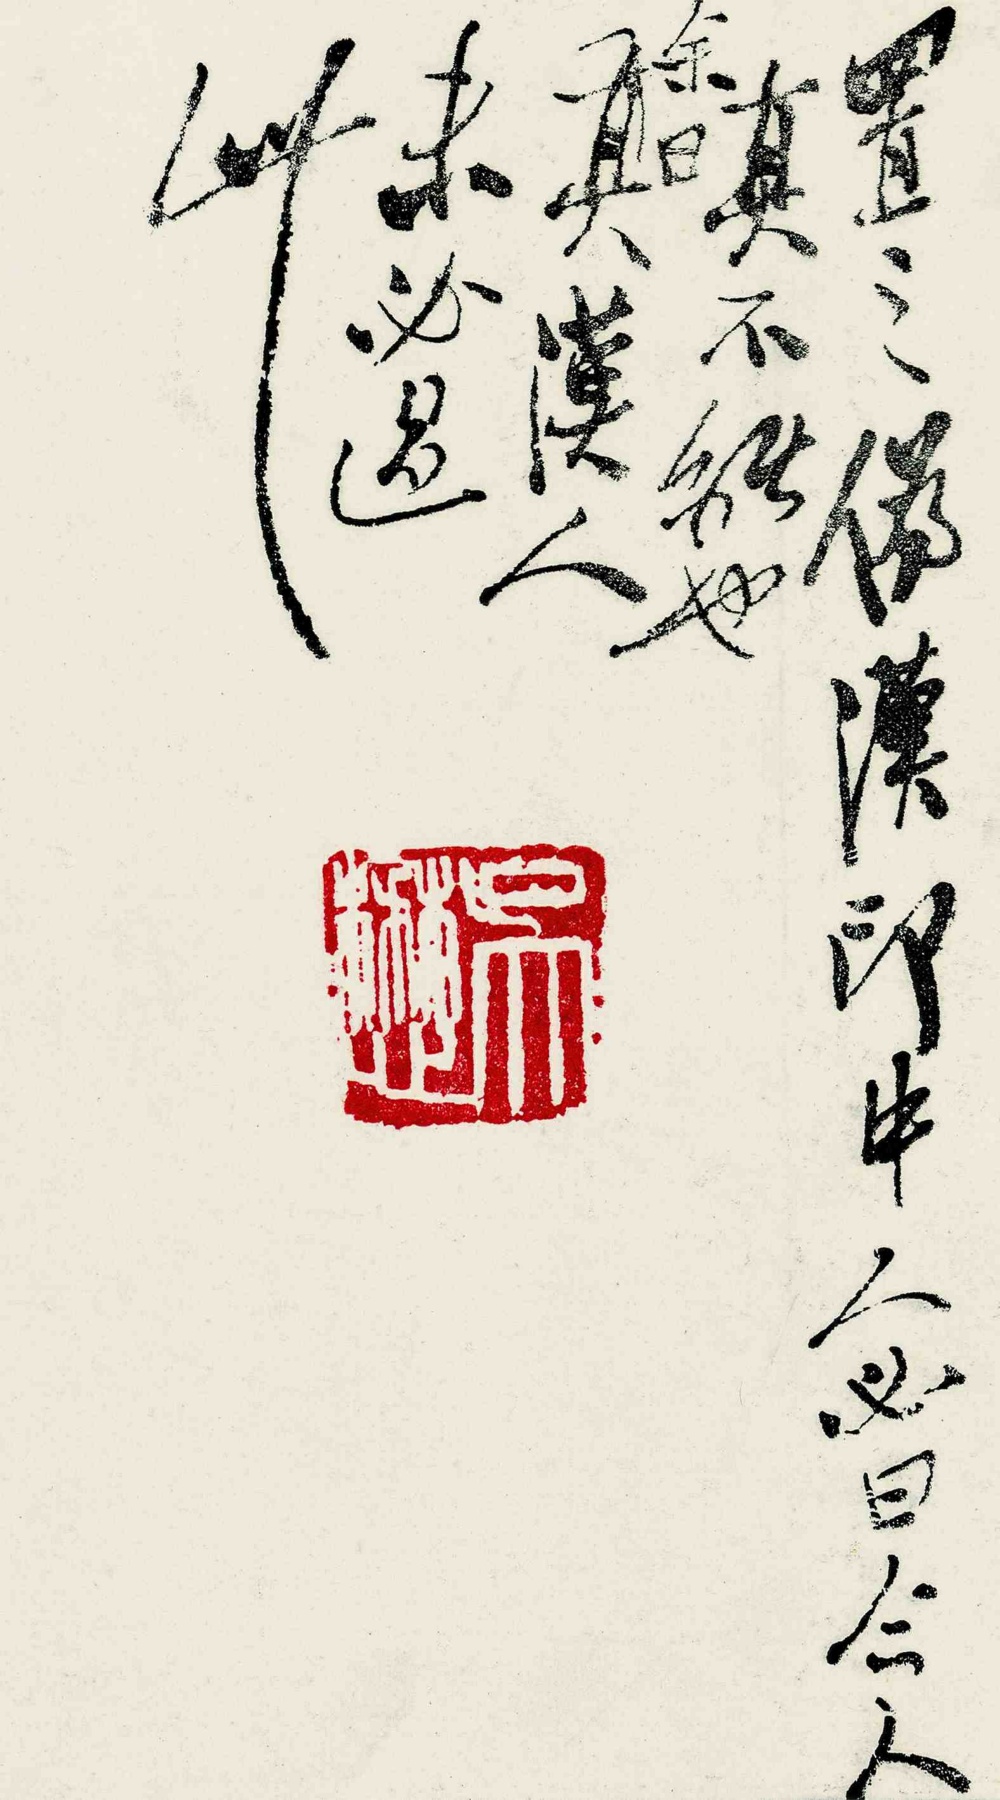 置之偽漢印中人必曰今人
真不能也
余曰
真漢人
未必過
此